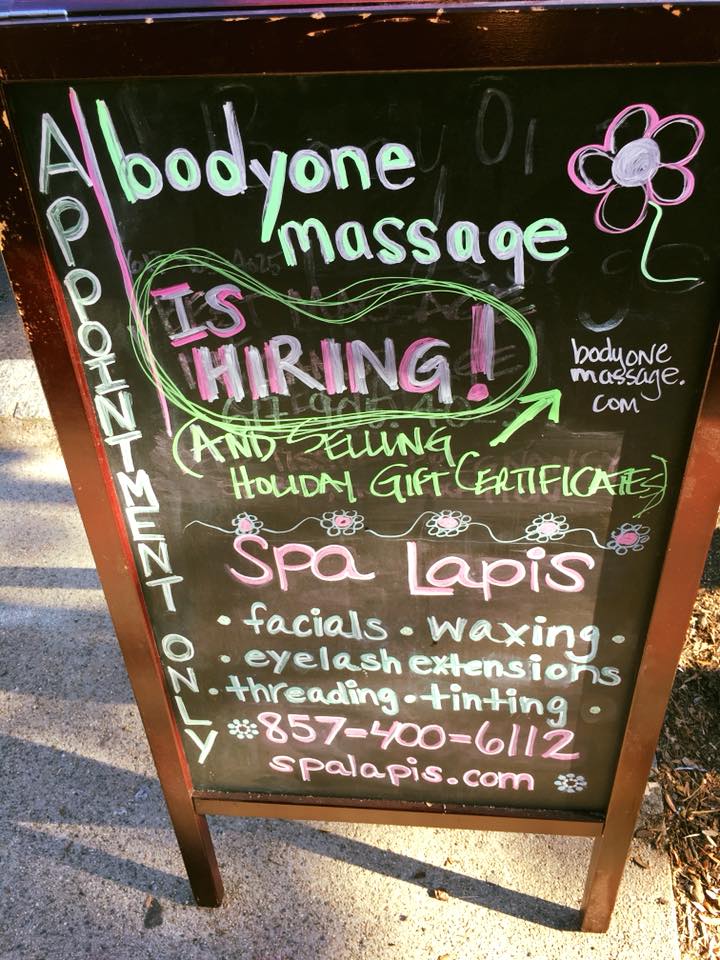 APPOINTMENT ONLY
bodyone
massage
IS
HIRING!
(AND SELLING
HOLIDAY GIFT CERTIFICATES)
bodyone
massage.
com
Spa Lapis
• facials • waxing •
• eyelash extensions
• threading • tinting •
857-400-6112
spalapis.com